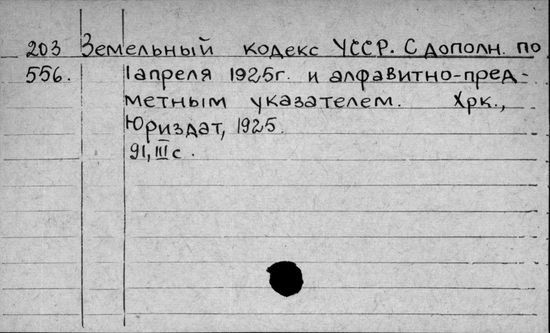 203 Земельный кодекс УССР. С дополн. по
556. 1 апреля 1925г. и алфавитно-пред-
метным указателем. Хрк.,
Юриздат, 1925.
91, III с.